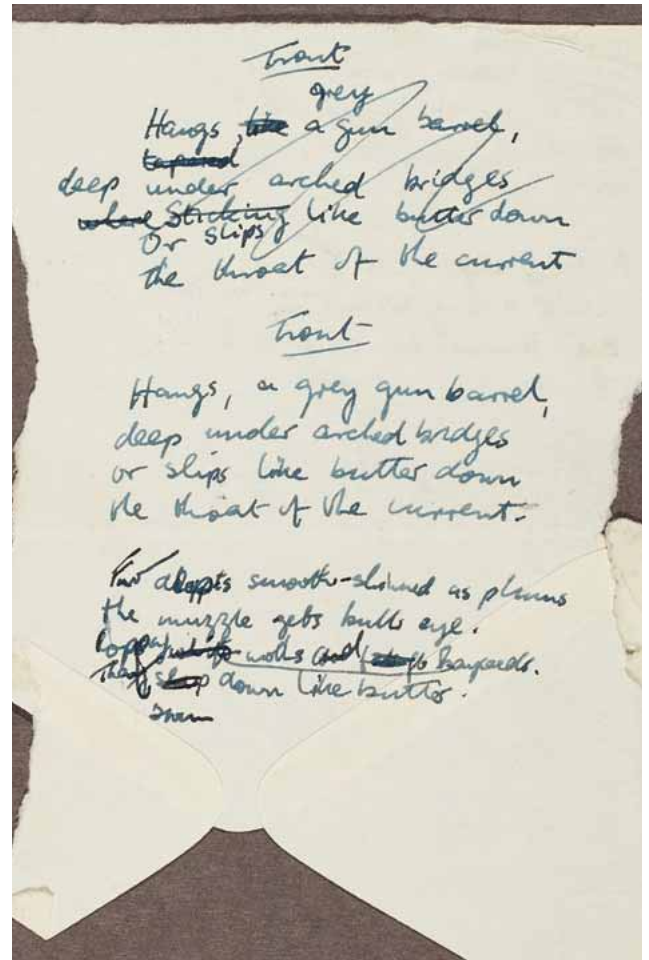 Trout
grey
Hangs, like a gun barrel,
tapered
deep under arched bridges
where Sticking like butter down
Or slips
the throat of the current
Trout
Hangs, a grey gun barrel,
deep under arched bridges
or slips like butter down
the throat of the current.
From depths smooth-skinned as plums
the muzzle gets bull's eye.
moths and
down like butter.